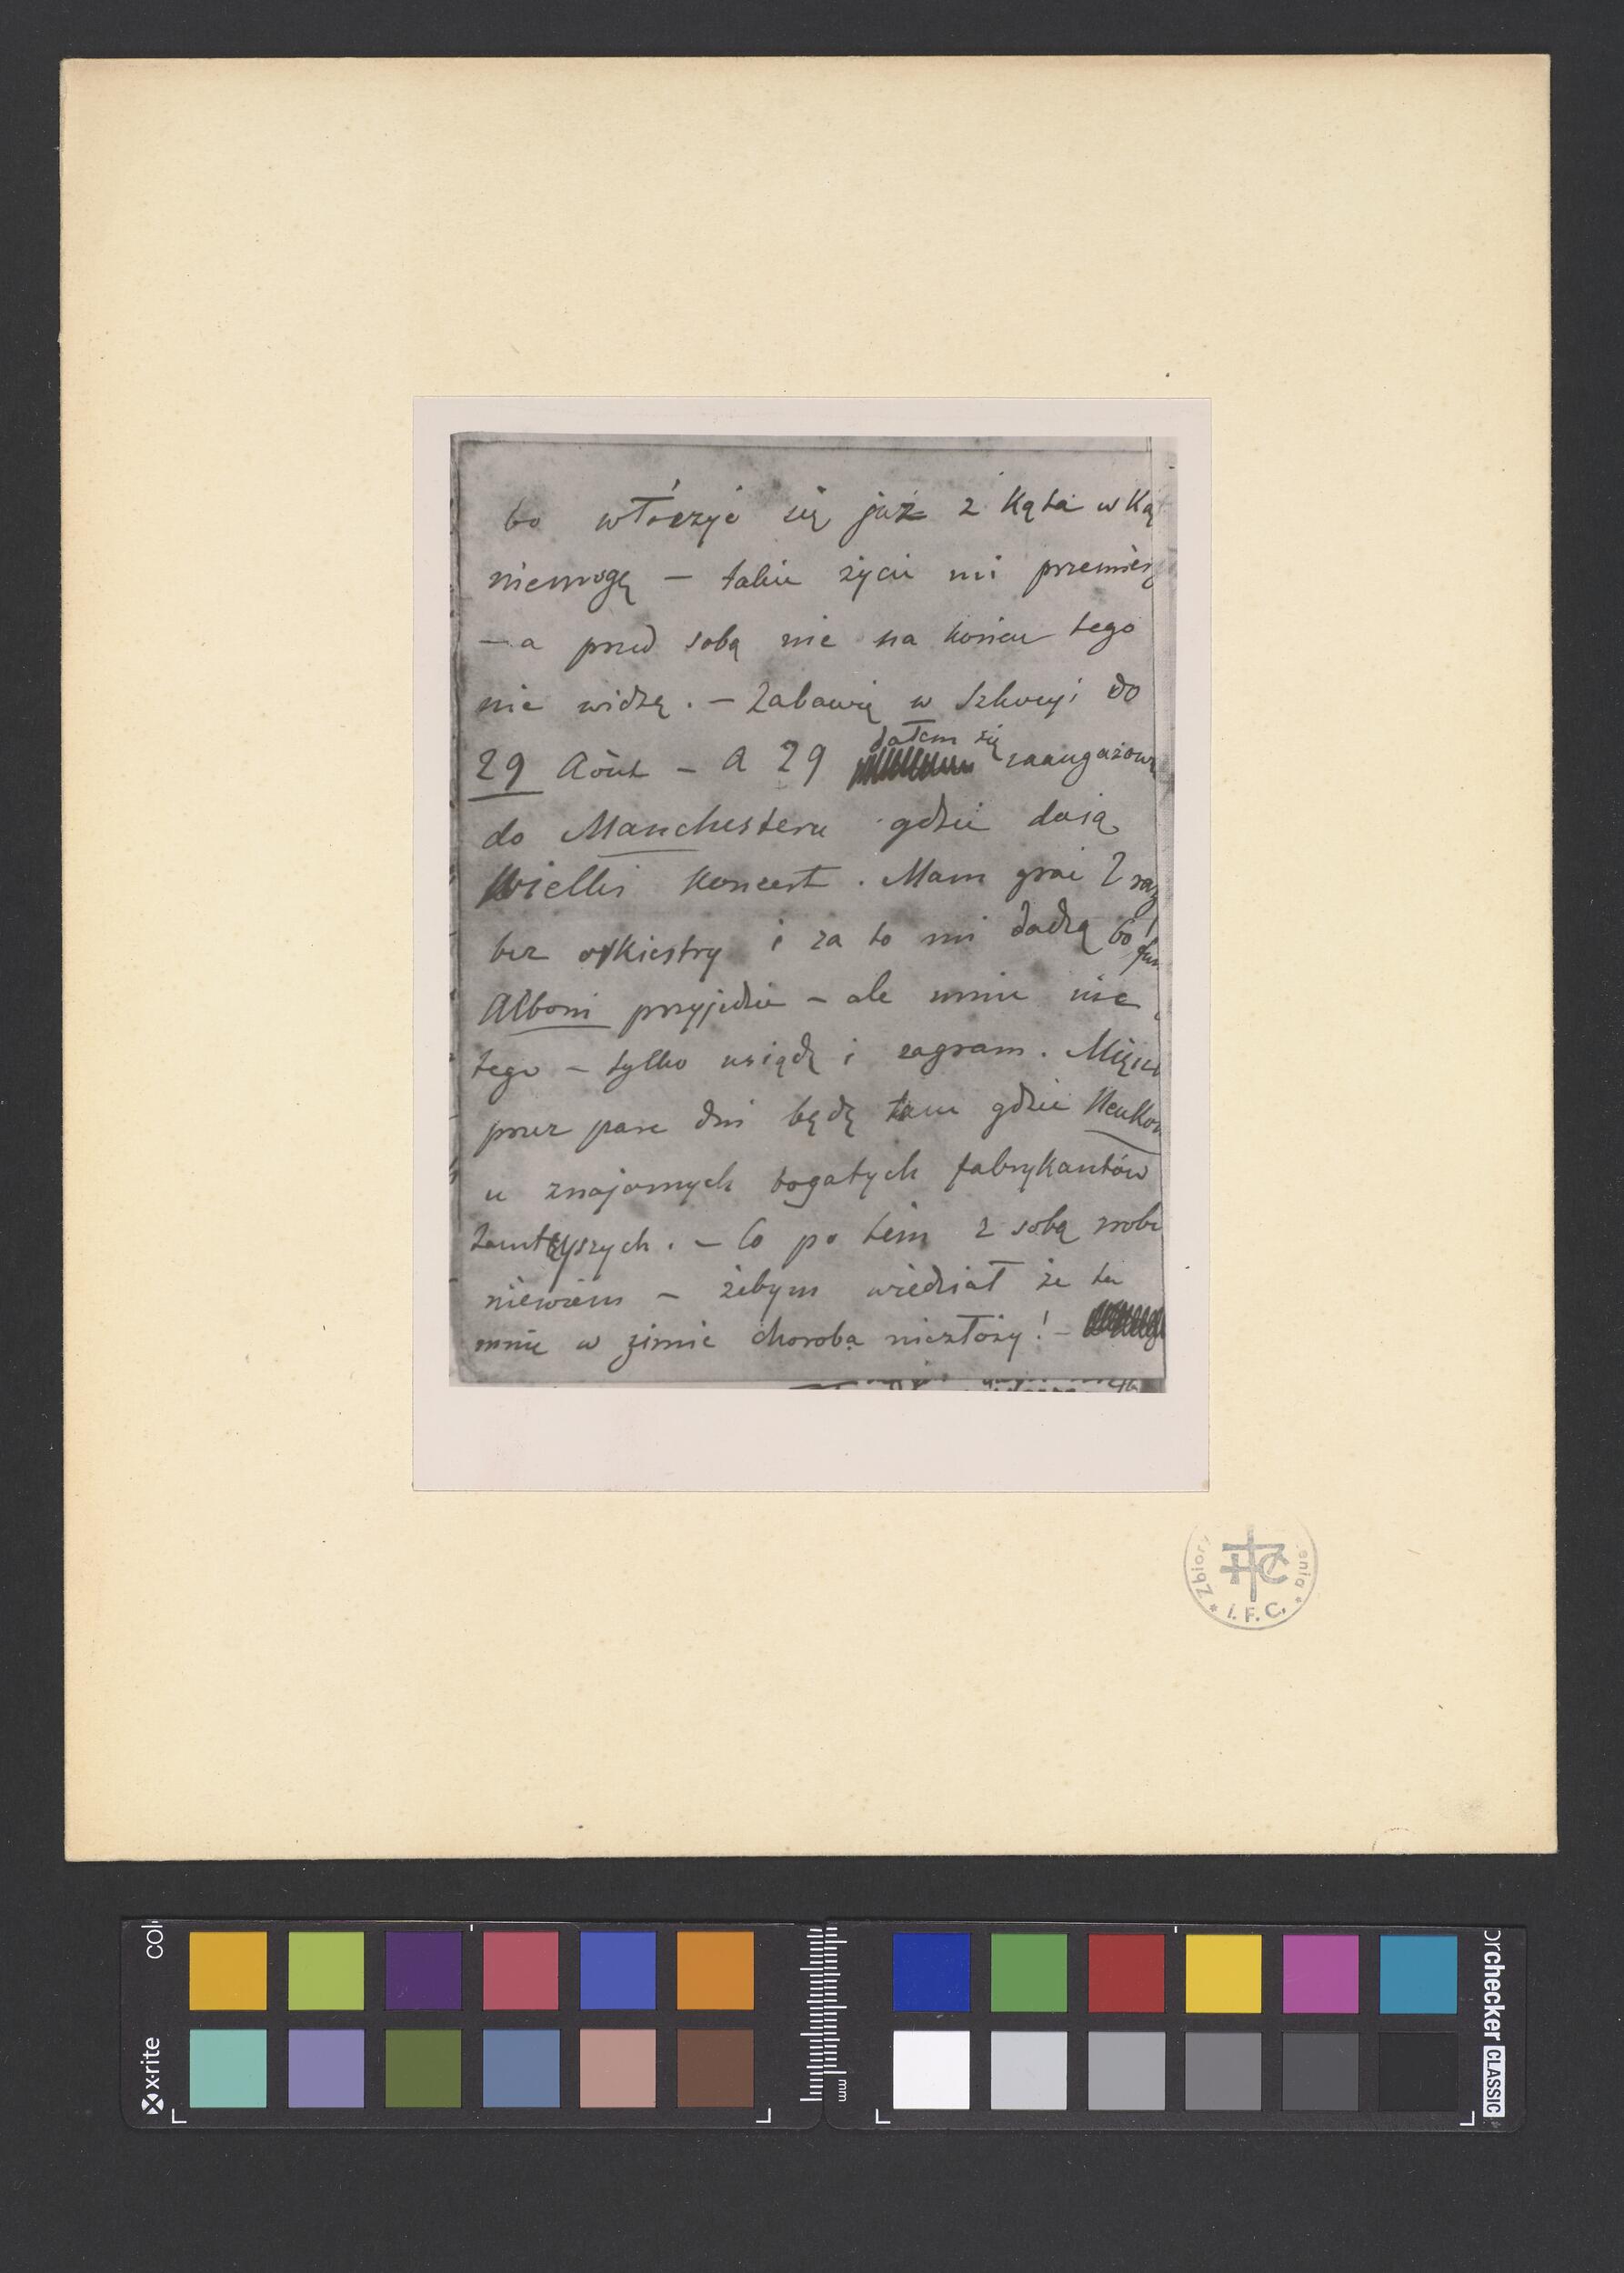 bo włóczyć się już z kąta w ką
niemogę – takie życie mi przemierz
– a przed sobą nic na końcu tego
nie widzę. – Zabawię w Szkocyi do
29 Août – a 29 dałem się zaangażowa
do Manchesteru gdzie dają
Wielki koncert. Mam grać 2 razy
bez orkiestry i za to mi dadzą 60 fun
Alboni przyjedzie – ale mnie nic
tego – tylko usiądę i zagram.
przez parę dni będę tam gdzie Neukom
u znajomych bogatych fabrykantów
tamtejszych. – Co po tém z sobą zrobi
niewiem – żebym wiedział że tu
mnie w zimie choroba niezłoży! –
Zbiory
I.F.C.
x-rite
mm
colorchecker CLASSIC